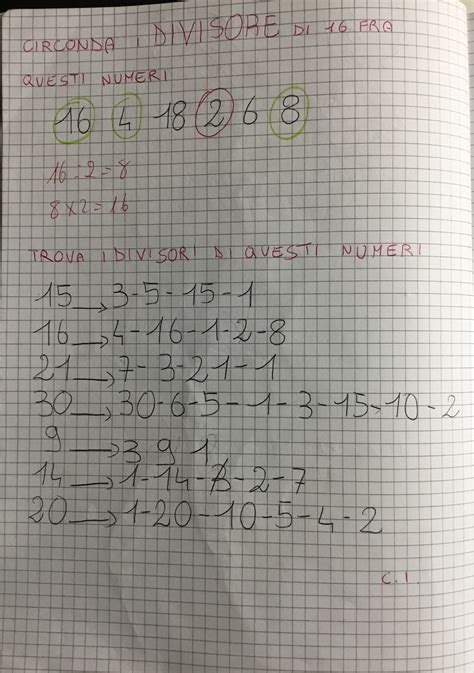 CIRCONDA I DIVISORE DI 16 FRA
QUESTI NUMERI
16 4 18 2 6 8
16 : 2 = 8
8 x 2 = 16
TROVA I DIVISORI DI QUESTI NUMERI
15 → 3 - 5 - 15 - 1
16 → 4 - 16 - 1 - 2 - 8
21 → 7 - 3 - 21 - 1
30 → 30 - 6 - 5 - 1 - 3 - 15 - 10 - 2
9 → 3 9 1
14 → 1 - 14 - 2 - 7
20 → 1 - 20 - 10 - 5 - 4 - 2
C.I